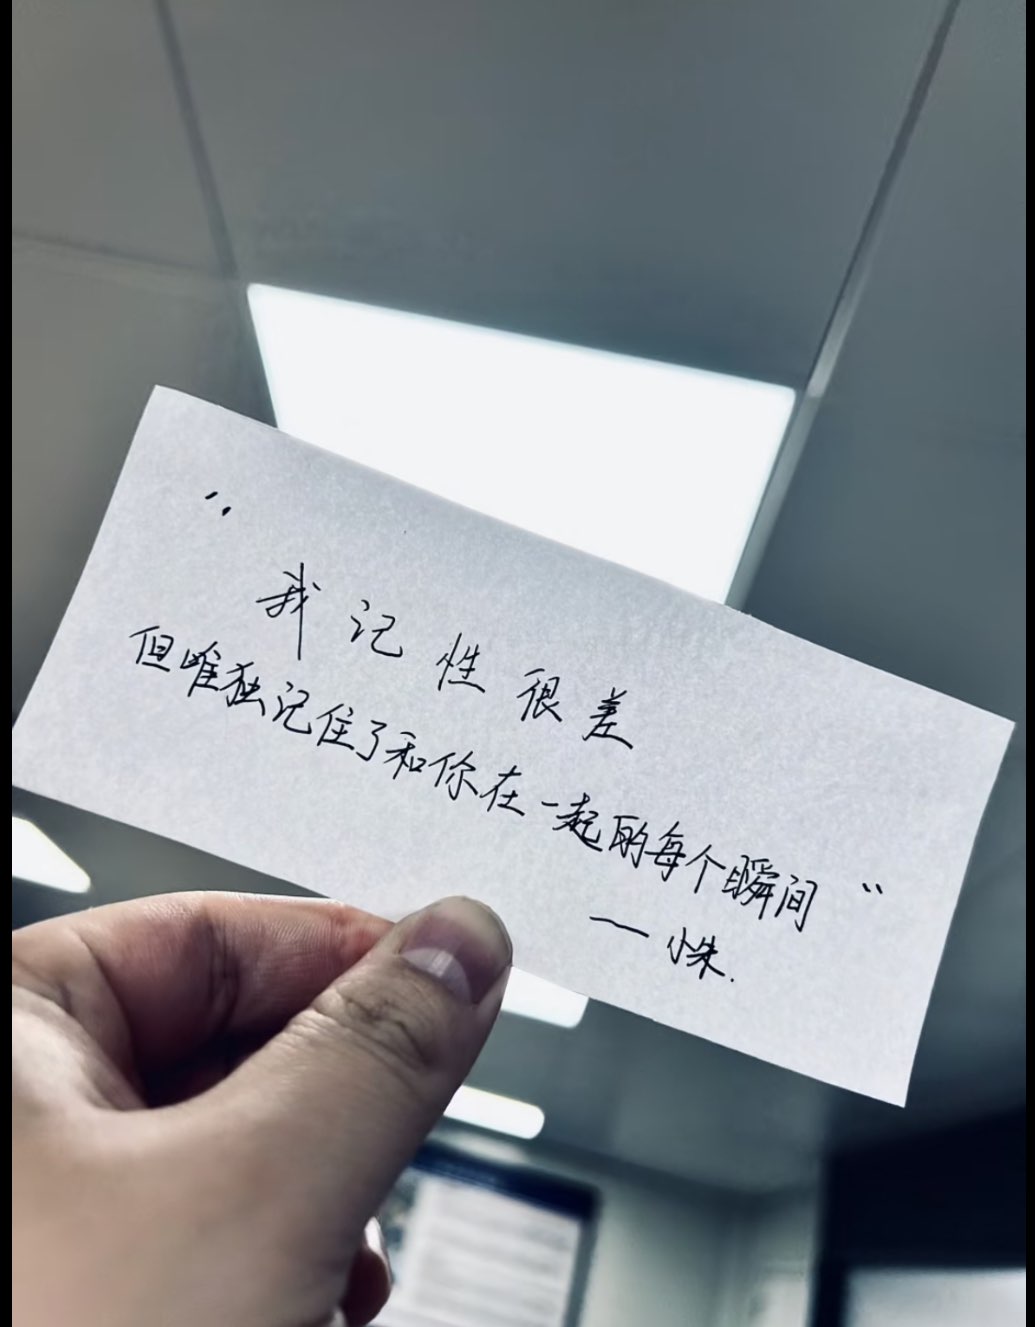 “
我记性很差
但唯独记住了和你在一起的每个瞬间”
——小朱.